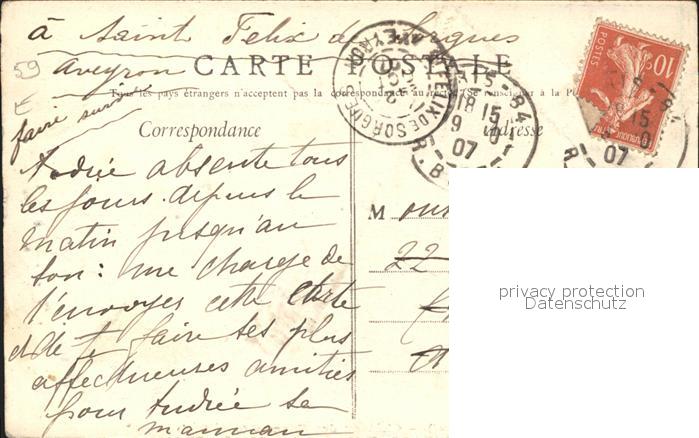 à Saint Felix de Sorgues
Aveyron
faire suivre
59
CARTE POSTALE
Tous les pays étrangers n'acceptent pas la correspondance au recto (Se renseigner à la P
Correspondance
Adresse
ST FELIX DE SORGUE
AVEYRON
18 15
9
07
R. 8
84
10c
POSTES
Andrée absente tous
les jours depuis le
matin jusqu'au
soir : me charge de
t'envoyer cette carte
et de te faire ses plus
affectueuses amitiés
pour Andrée sa
maman
M ons
22
privacy protection
Datenschutz